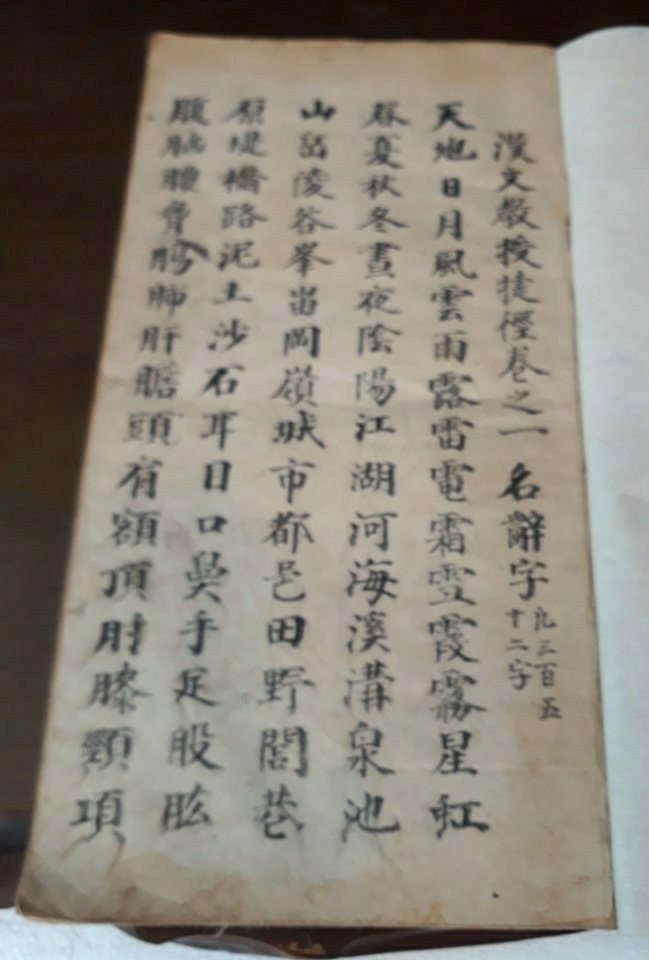 漢文教授捷徑卷之一 名辭字 凡三百五十二字
天地日月風雲雨露雷電霜雪霞霧星虹
春夏秋冬晝夜陰陽江湖河海溪溝泉池
山岳陵谷峯峀岡嶺城市都邑田野閭巷
原堤橋路泥土沙石耳目口鼻手足股肱
腹肺肝膽頭額頂肘膝頸項